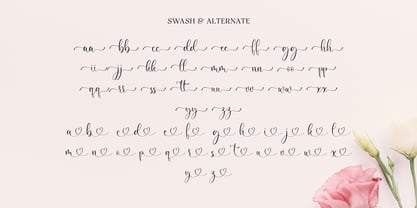 SWASH & ALTERNATE
aa bb cc dd ee ff gg hh
ii jj kk ll mm nn oo pp
qq rr ss tt uu vv ww xx
yy zz
a♡ b♡ c♡ d♡ e♡ f♡ g♡ h♡ i♡ j♡ k♡ l♡
m♡ n♡ o♡ p♡ q♡ r♡ s♡ t♡ u♡ v♡ w♡ x♡
y♡ z♡